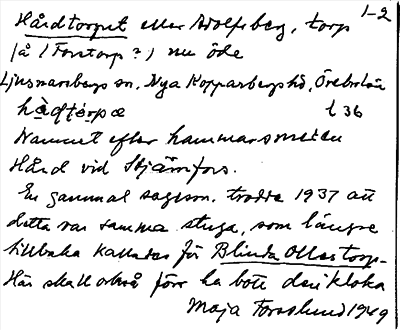 1-2
Hårdtorpet eller Adolfsberg, torp
på (Forstorp?) nu öde
Ljusnarsbergs sn. Nya Kopparbergs hd, Örebro län
hå̀ḍtọ́rpe t 36
Namnet efter hammarsmeden
Hård vid Stjärnfors.
En gammal sagesm. trodde 1937 att
detta var samma stuga, som längre
tillbaka kallades för Blinda Ollastorp.
Här skall också förr ha bott den kloka
Maja Forsslund 1949